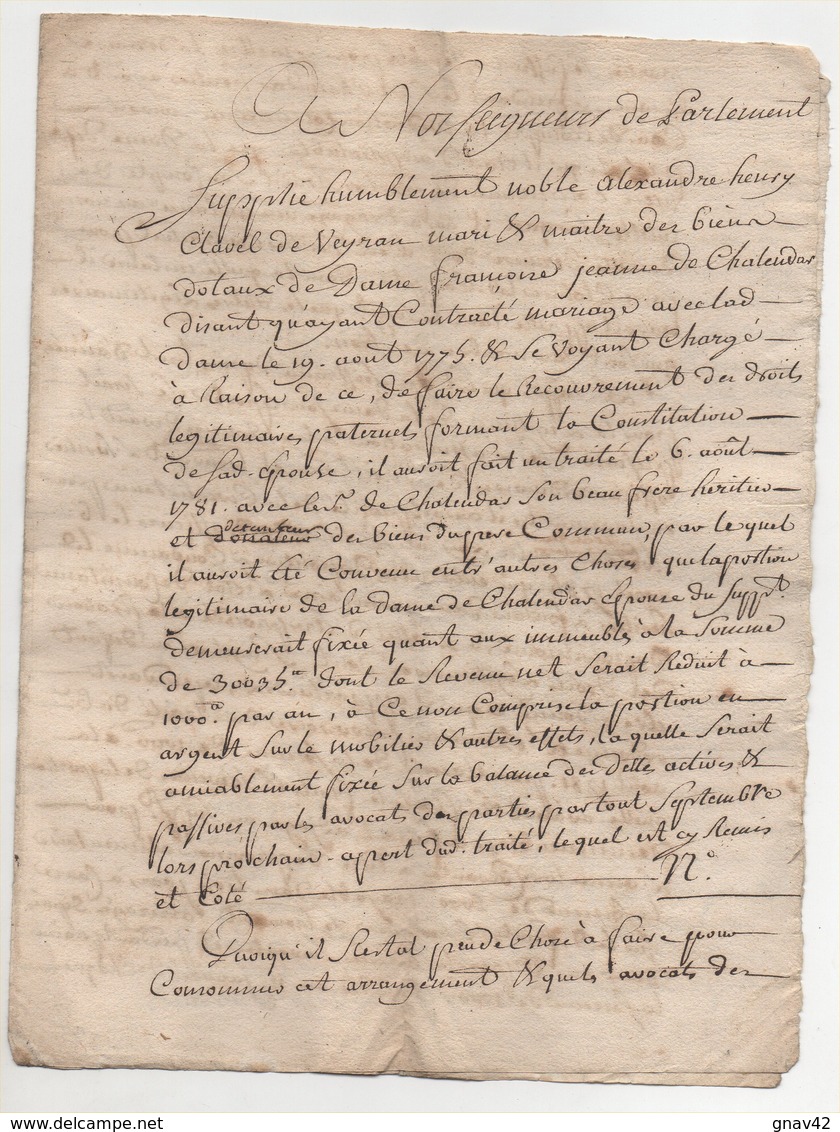 A Nosseigneurs de Parlement
Supplie humblement noble alexandre henry
Clavel de Veyran mari & maitre des biens
dotaux de Dame francoise jeanne de Chalendar
disant qu'ayant Contracté mariage avec lad
dame le 19. aout 1775. & se voyant Chargé
à Raison de ce, de faire le Recouvrement des droits
legitimaires paternels formant la Constitution
de sad. Epouse, il auroit fait un traité le 6. août
1781. avec le sr. de Chalendar son beau frere heritier
detenteur
et donateur des biens du pere Commun, par le quel
il auroit été Convenu entr'autres Choses que la portion
legitimaire de la dame de Chalendar Epouse du suppt.
demeurerait fixée quant aux immeubles à la somme
de 30035.ᵗᵗ dont le Revenu net serait Reduit à
1000.ᵗᵗ par an, à Ce non Comprise la portion en
argent sur le mobilier & autres effets, la quelle serait
amiablement fixée sur la balance des dettes actives &
passives par les avocats des parties par tout septembre
lors prochain. apert dud. traité, le quel est cy Remis
et Coté N.°
Quoiqu'il Restat peu de Chose à faire pour
Consommer cet arrangement & quels avocats des
delcampe.net
gnav42